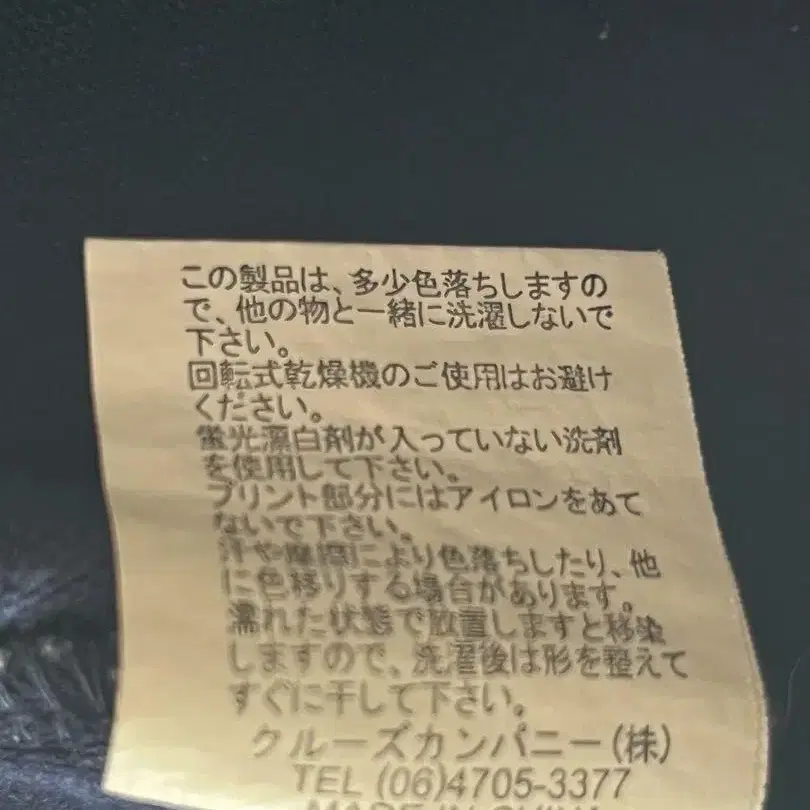 この製品は、多少色落ちしますの
で、他の物と一緒に洗濯しないで
下さい。
回転式乾燥機のご使用はお避け
ください。
蛍光漂白剤が入っていない洗剤
を使用して下さい。
プリント部分にはアイロンをあて
ないで下さい。
汗や摩擦により色落ちしたり、他
に色移りする場合があります。
濡れた状態で放置しますと移染
しますので、洗濯後は形を整えて
すぐに干して下さい。
クルーズカンパニー(株)
TEL (06)4705-3377
MADE IN CHINA